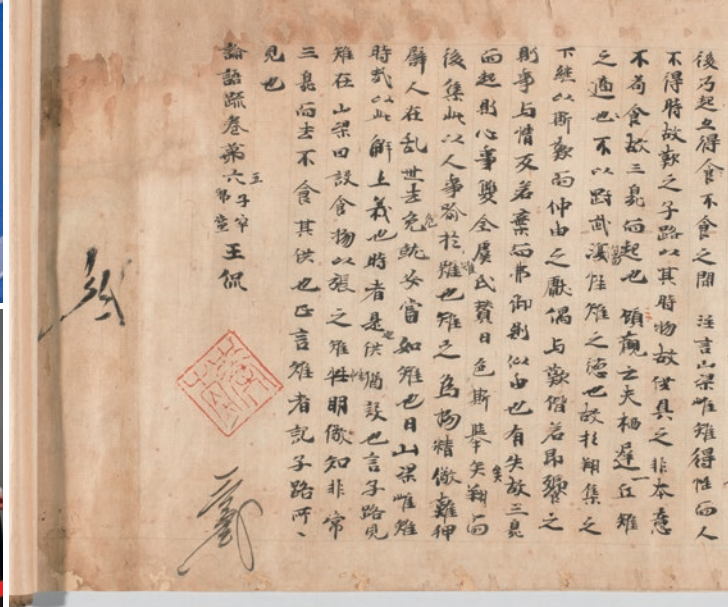 後乃起立得食不食之間 注言山梁雌雉得性而人
不得時故歎之子路以其時物故供具之非本意
不苟食故三臭而起也 顧歡云夫栖遲一丘雉
之適也不以剛武復性雉之德也故於翔集之
下繼以斯歎而仲由之獻偶与歎偕若即饗之
則事与情反若棄而弗御則似由也有失故三臭
而起則心事雙全虞氏贊曰色斯舉矣翔而
後集此以人事喻於雉也雉之為物精儆難狎
譬人在乱世去危就安當如雉也曰山梁雌雉
時哉以此解上義也時者是供猶設也言子路見
雉在山梁因設食物以張之雉性明儆知非常
三臭而去不食其供也正言雌者記子路所
見也
論語疏卷第六 子罕 王侃